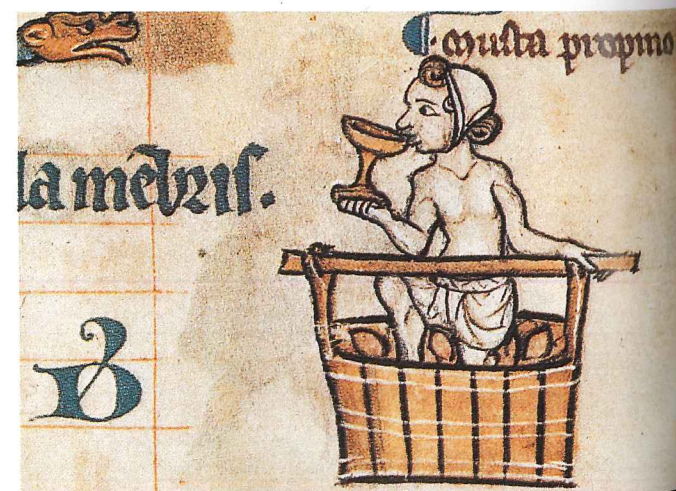 musta propino
la mēbris.
b